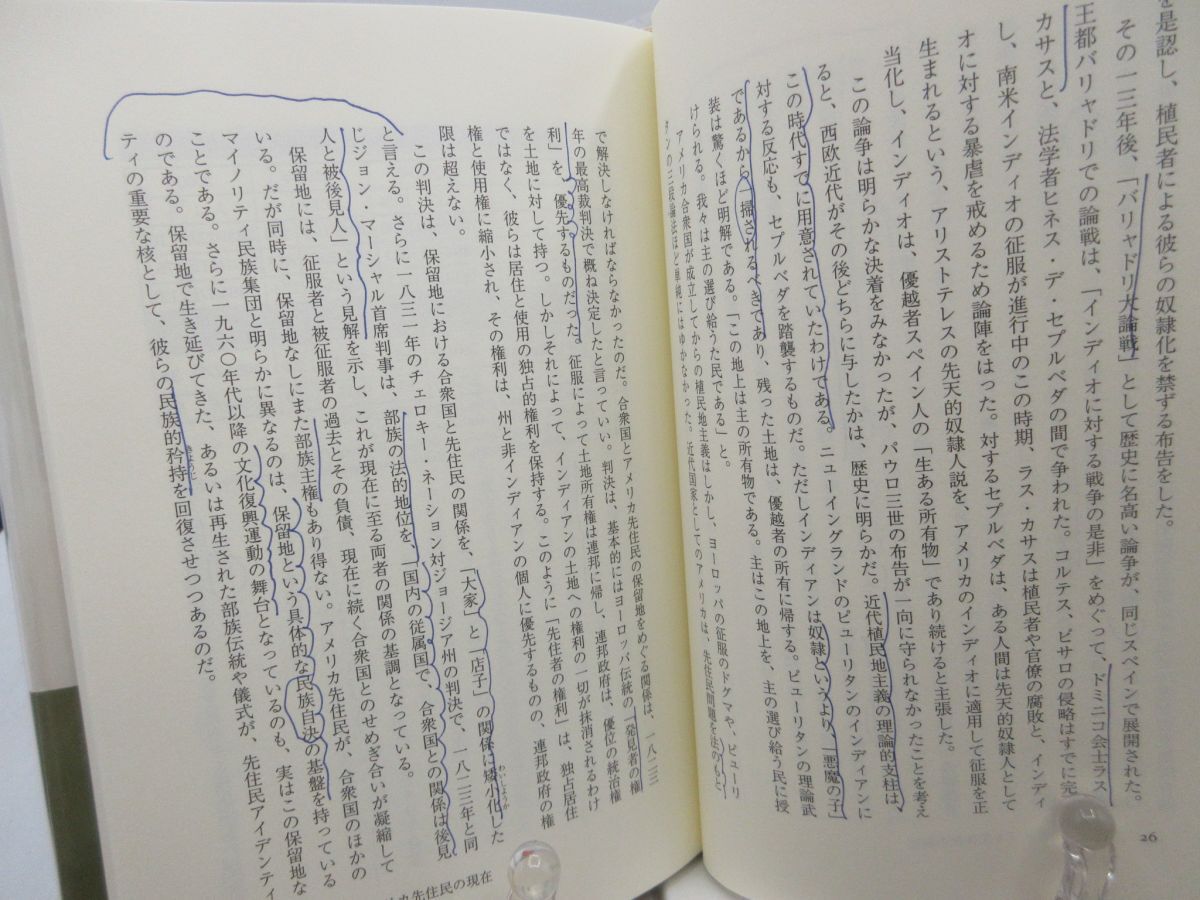 を是認し、植民者による彼らの奴隷化を禁ずる布告をした。
その一三年後、「バリャドリ大論戦」として歴史に名高い論争が、同じスペインで展開された。
王都バリャドリでの論戦は、「インディオに対する戦争の是非」をめぐって、ドミニコ会士ラス・
カサスと、法学者ヒネス・デ・セプルベダの間で争われた。コルテス、ピサロの侵略はすでに完
し、南米インディオの征服が進行中のこの時期、ラス・カサスは植民者や官僚の腐敗と、インディ
オに対する暴虐を戒めるため論陣をはった。対するセプルベダは、ある人間は先天的奴隷人として
生まれるという、アリストテレスの先天的奴隷人説を、アメリカのインディオに適用して征服を正
当化し、インディオは、優越者スペイン人の「生ある所有物」であり続けると主張した。
この論争は明らかな決着をみなかったが、パウロ三世の布告が一向に守られなかったことを考え
ると、西欧近代がその後どちらに与したかは、歴史に明らかだ。近代植民地主義の理論的支柱は、
この時代すでに用意されていたわけである。ニューイングランドのピューリタンのインディアンに
対する反応も、セプルベダを踏襲するものだ。ただしインディアンは奴隷というより、「悪魔の子」
であるから一掃されるべきであり、残った土地は、優越者の所有に帰する。ピューリタンの理論武
装は驚くほど明解である。「この地上は主の所有物である。主はこの地上を、主の選び給う民に授
けられる。我々は主の選び給うた民である」と。
アメリカ合衆国が成立してからの植民地主義はしかし、ヨーロッパの征服のドグマや、ピューリ
タンの三段論法ほど単純にはゆかなかった。近代国家としてのアメリカは、先住民問題を法のもと
26
で解決しなければならなかったのだ。合衆国とアメリカ先住民の保留地をめぐる関係は、一八二三
年の最高裁判決で概ね決定したと言っていい。判決は、基本的にはヨーロッパ伝統の「発見者の権
利」を、優先するものだった。征服によって土地所有権は連邦に帰し、連邦政府は、優位の統治権
を土地に対して持つ。しかしそれによって、インディアンの土地への権利の一切が抹消されるわけ
ではなく、彼らは居住と使用の独占的権利を保持する。このように「先住者の権利」は、独占居住
権と使用権に縮小され、その権利は、州と非インディアンの個人に優先するものの、連邦政府の権
限は超えない。
この判決は、保留地における合衆国と先住民の関係を、「大家」と「店子」の関係に矮小化した
わいしょうか
と言える。さらに一八三一年のチェロキー・ネーション対ジョージア州の判決で、一八二三年と同
じジョン・マーシャル首席判事は、部族の法的地位を、「国内の従属国で、合衆国との関係は後見
人と被後見人」という見解を示し、これが現在に至る両者の関係の基調となっている。
保留地には、征服者と被征服者の過去とその負債、現在に続く合衆国とのせめぎ合いが凝縮して
いる。だが同時に、保留地なしにまた部族主権もあり得ない。アメリカ先住民が、合衆国のほかの
マイノリティ民族集団と明らかに異なるのは、保留地という具体的な民族自決の基盤を持っている
ことである。さらに一九六〇年代以降の文化復興運動の舞台となっているのも、実はこの保留地な
のである。保留地で生き延びてきた、あるいは再生された部族伝統や儀式が、先住民アイデンティ
ティの重要な核として、彼らの民族的矜持を回復させつつあるのだ。
きょうじ
先住民の現在